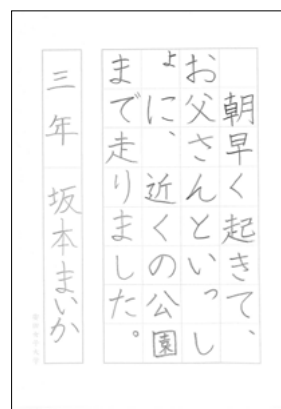 朝早く起きて、
お父さんといっし
ょに、近くの公園
まで走りました。
三年 坂本まいか